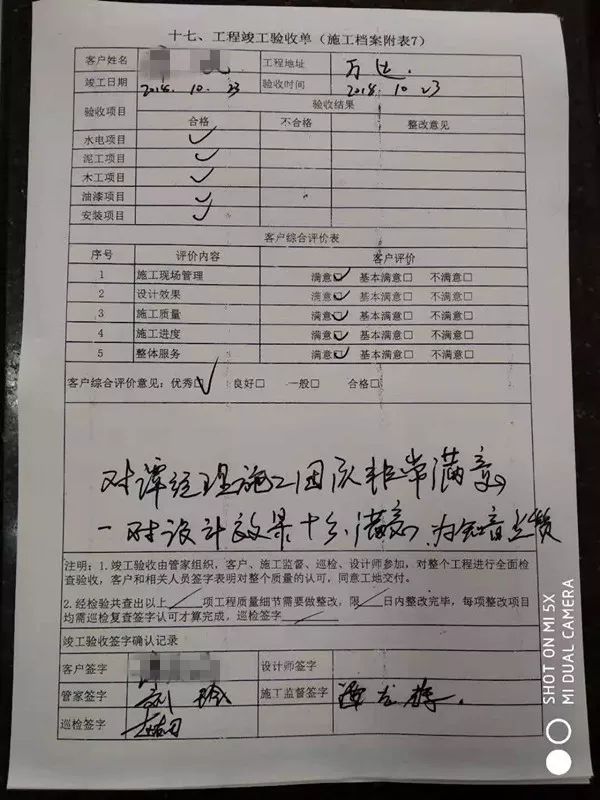 十七、工程竣工验收单（施工档案附表7）
客户姓名 工程地址 万达
竣工日期 2018.10.23 验收时间 2018.10.23
验收项目 验收结果
合格 不合格 整改意见
水电项目 ✓
泥工项目 ✓
木工项目 ✓
油漆项目 ✓
安装项目 ✓
客户综合评价表
序号 评价内容 客户评价
1 施工现场管理 满意☑ 基本满意□ 不满意□
2 设计效果 满意☑ 基本满意□ 不满意□
3 施工质量 满意☑ 基本满意□ 不满意□
4 施工进度 满意☑ 基本满意□ 不满意□
5 整体服务 满意☑ 基本满意□ 不满意□
客户综合评价意见：优秀☑ 良好□ 一般□ 合格□
对谭经理施工团队非常满意
对设计效果十分满意 为知音点赞
注明：1.竣工验收由管家组织，客户、施工监督、巡检、设计师参加，对整个工程进行全面检
查验收，客户和相关人员签字表明对整个质量的认可，同意工地交付。
2.经检验共查出以上 项工程质量细节需要做整改，限 日内整改完毕，每项整改项目
均需巡检复查签字认可才算完成，巡检签字
竣工验收签字确认记录
客户签字 设计师签字
管家签字 施工监督签字
巡检签字
SHOT ON MI 5X
MI DUAL CAMERA